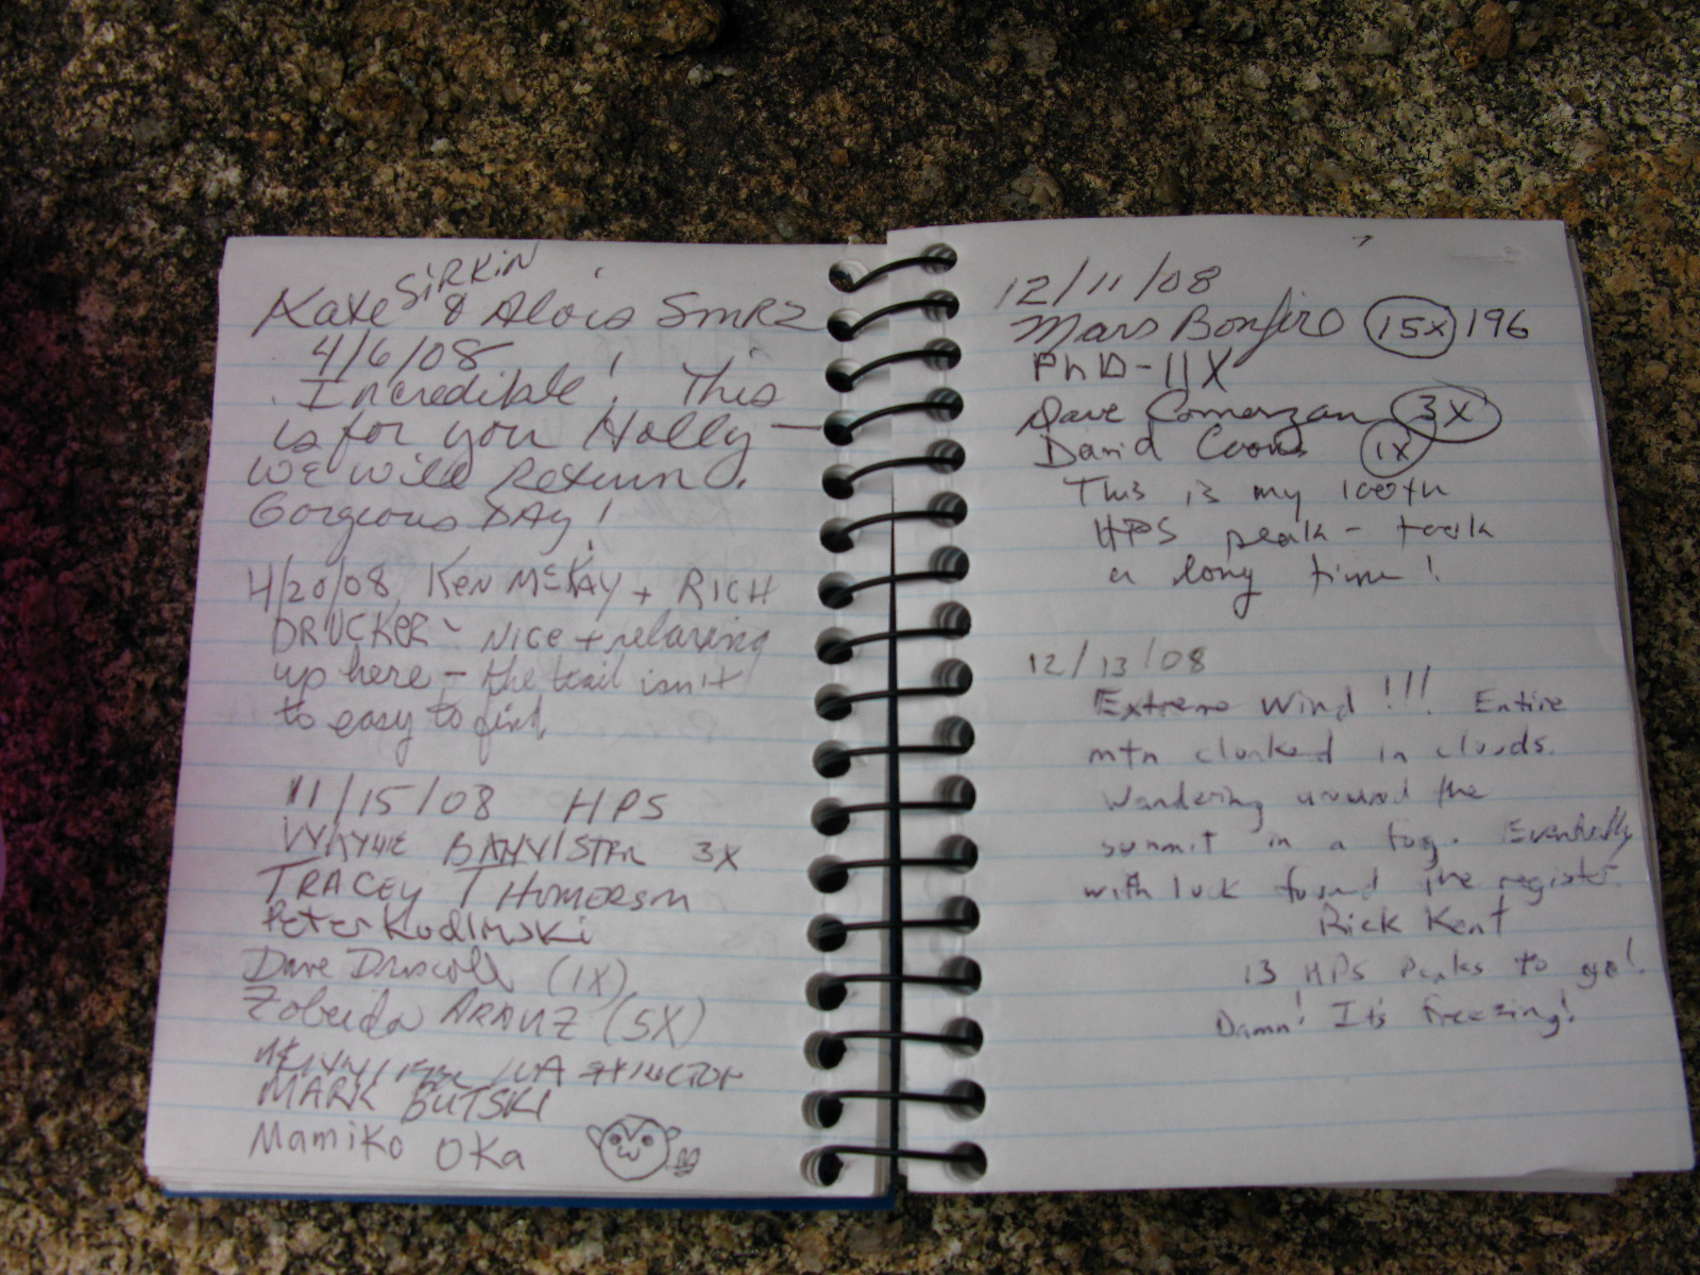 Kaye Sirkin & Alois Smrz
4/6/08
Incredible! This
is for you Holly —
We will return.
Gorgeous DAy!
4/20/08, Ken McKAy + RICH
DRUCKER - NICE + relaxing
up here - the trail isn't
to easy to find.
11/15/08 HPS
WAYNE BANNISTER 3X
TRACEY THOMERSON
Peter Kudlinski
Dave Driscoll (1X)
Zobeida ARANZ (5X)
MARK BUTSKI
Mamiko Oka
12/11/08
Mars Bonfire 15x 196
PhD - 11X
Dave Comerzan 3X
David Coons 1X
This is my 100th
HPS peak - took
a long time!
12/13/08
Extreme Wind!!! Entire
mtn cloaked in clouds.
Wandering around the
summit in a fog. Eventually
with luck found the register.
Rick Kent
13 HPS Peaks to go!
Damn! It's freezing!